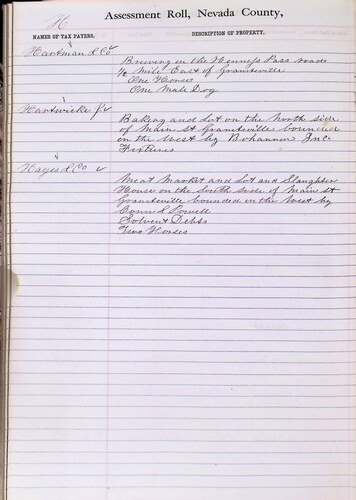 H
Assessment Roll, Nevada County,
NAMES OF TAX PAYERS.
DESCRIPTION OF PROPERTY.
Hartman & Co
Brewing on the Henness Pass road
1/2 Mile East of Graniteville
One Horses
One Male Dog
Hartwicke J.
Bakery and Lot on the North side
of Main st Graniteville bounded
on the West by Bohannon Inc
Fixtures
Hayes & Co
Meat Market and Lot and Slaughter
House on the South side of Main st
Graniteville bounded on the West by
Conn & Powell
Solvent Debts
Two Horses